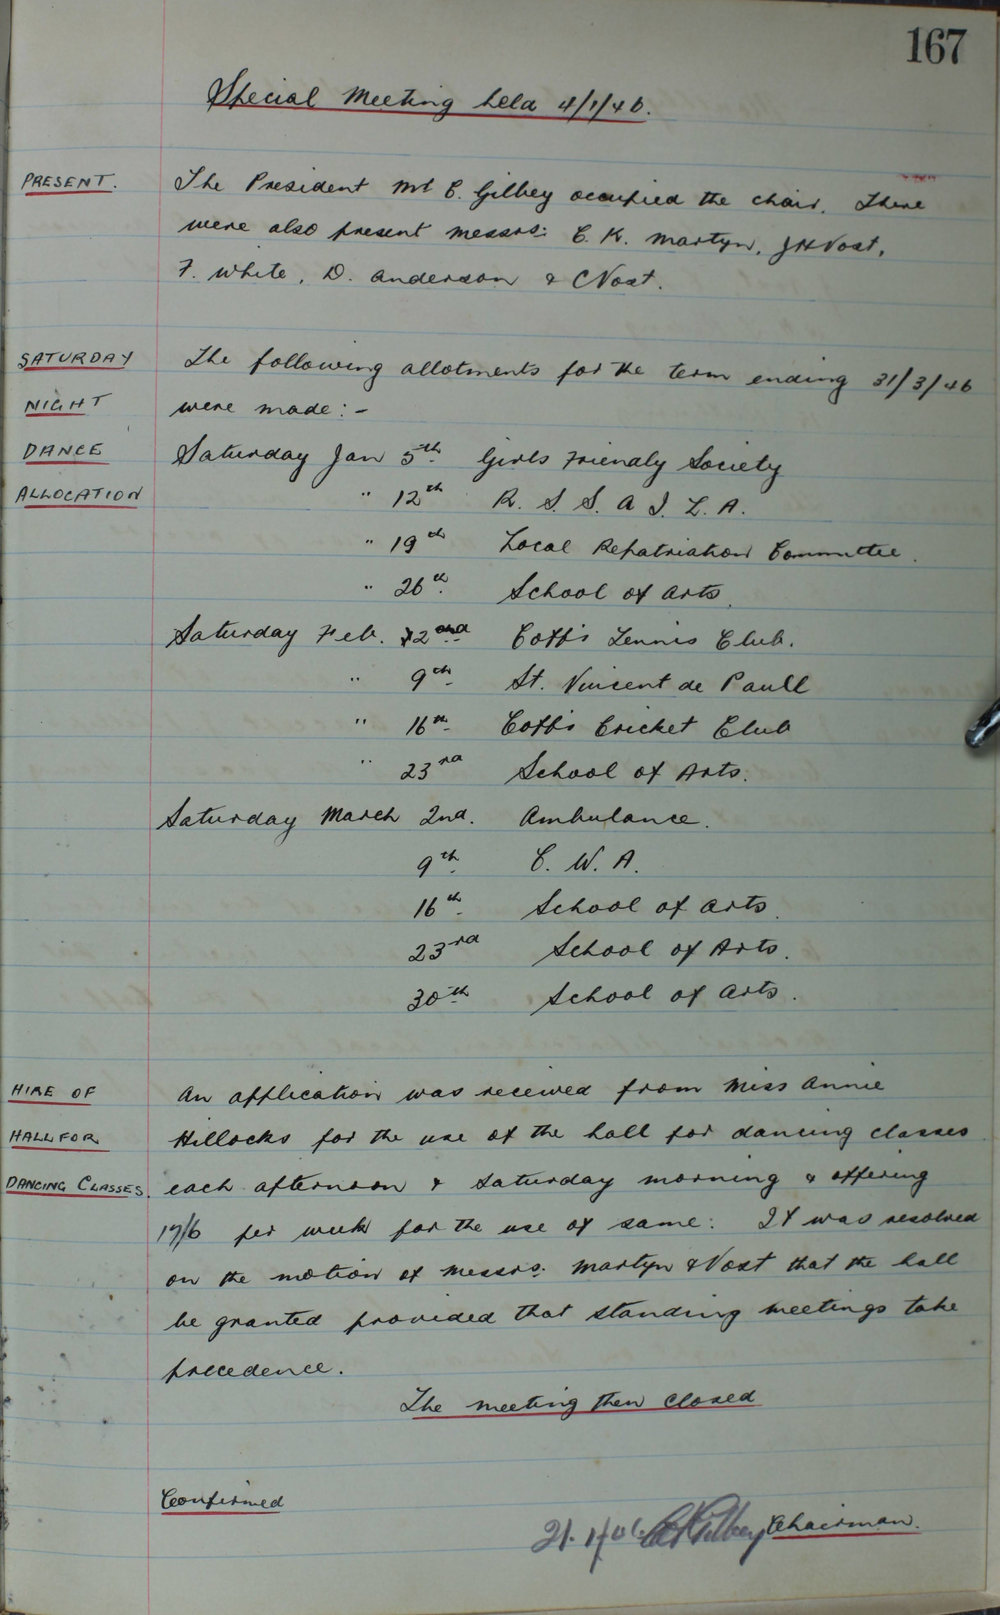 167
Special Meeting held 4/1/46.
PRESENT.
The President Mr C. Gilbey occupied the chair. There
were also present Messrs: C. K. Martyn, J H Vost,
F. White, D. Anderson & C Vost.
SATURDAY
NIGHT
DANCE
ALLOCATION
The following allotments for the term ending 31/3/46
were made:-
Saturday Jan 5th. Girls Friendly Society
" 12th R. S. S. A I. L. A.
" 19th Local Repatriation Committee.
" 26th. School of Arts.
Saturday Feb. 2nd Coff's Tennis Club.
" 9th St. Vincent de Paull
" 16th Coff's Cricket Club
" 23rd School of Arts.
Saturday March 2nd. Ambulance.
9th. C. W. A.
16th School of Arts.
23rd School of Arts.
30th School of Arts.
HIRE OF
HALL FOR
DANCING CLASSES.
An application was received from Miss Annie
Hillocks for the use of the hall for dancing classes
each afternoon & Saturday morning & offering
17/6 per week for the use of same: It was resolved
on the motion of Messrs: Martyn & Vost that the hall
be granted provided that standing meetings take
precedence.
The meeting then closed
Confirmed
Gilbey Chairman.